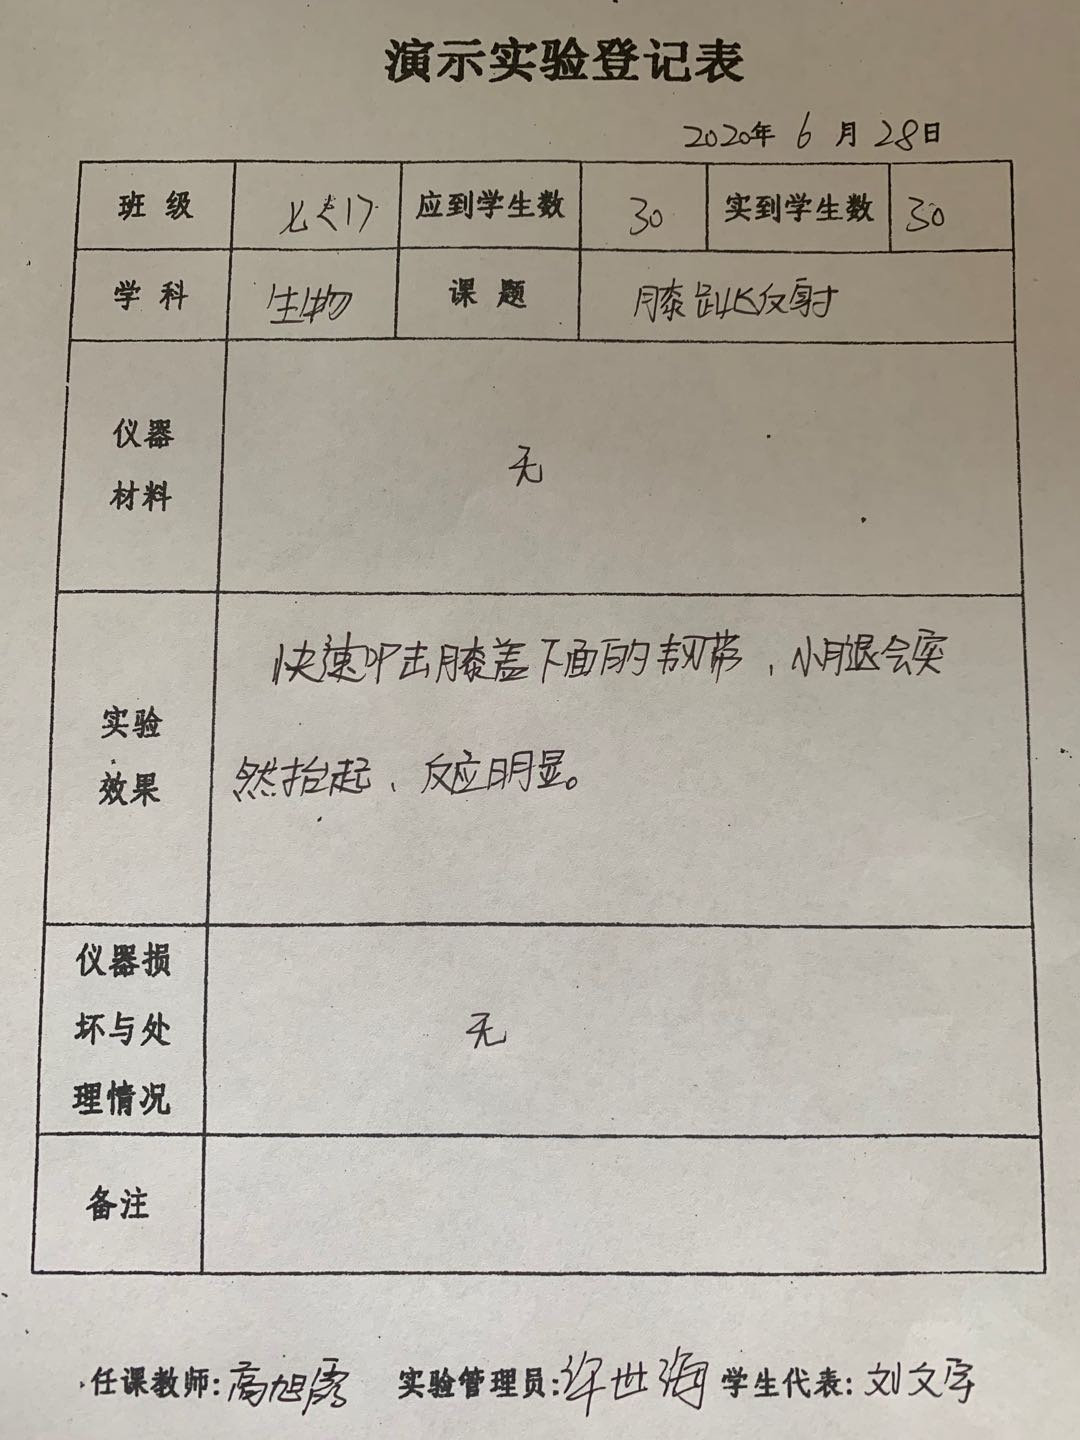 演示实验登记表
2020年 6 月 28日
班 级 七<1> 应到学生数 30 实到学生数 30
学 科 生物 课 题 膝跳反射
仪器
材料
无
快速叩击膝盖下面的韧带，小腿会突
然抬起、反应明显。
实验
效果
仪器损
坏与处
理情况
无
备注
任课教师:高旭霞 实验管理员:许世海 学生代表:刘文宇